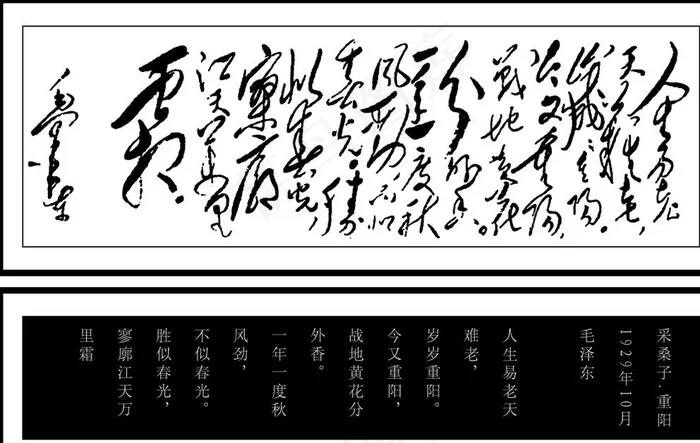 人生易老
天难老,
岁岁重阳。
今又重阳,
战地黄花
分外香。
一年一度秋
风劲,不似
春光。胜
似春光,
寥廓
江天万里
霜。
毛泽东
采桑子·重阳
1929年10月
毛泽东
人生易老天
难老,
岁岁重阳。
今又重阳,
战地黄花分
外香。
一年一度秋
风劲,
不似春光。
胜似春光,
寥廓江天万
里霜